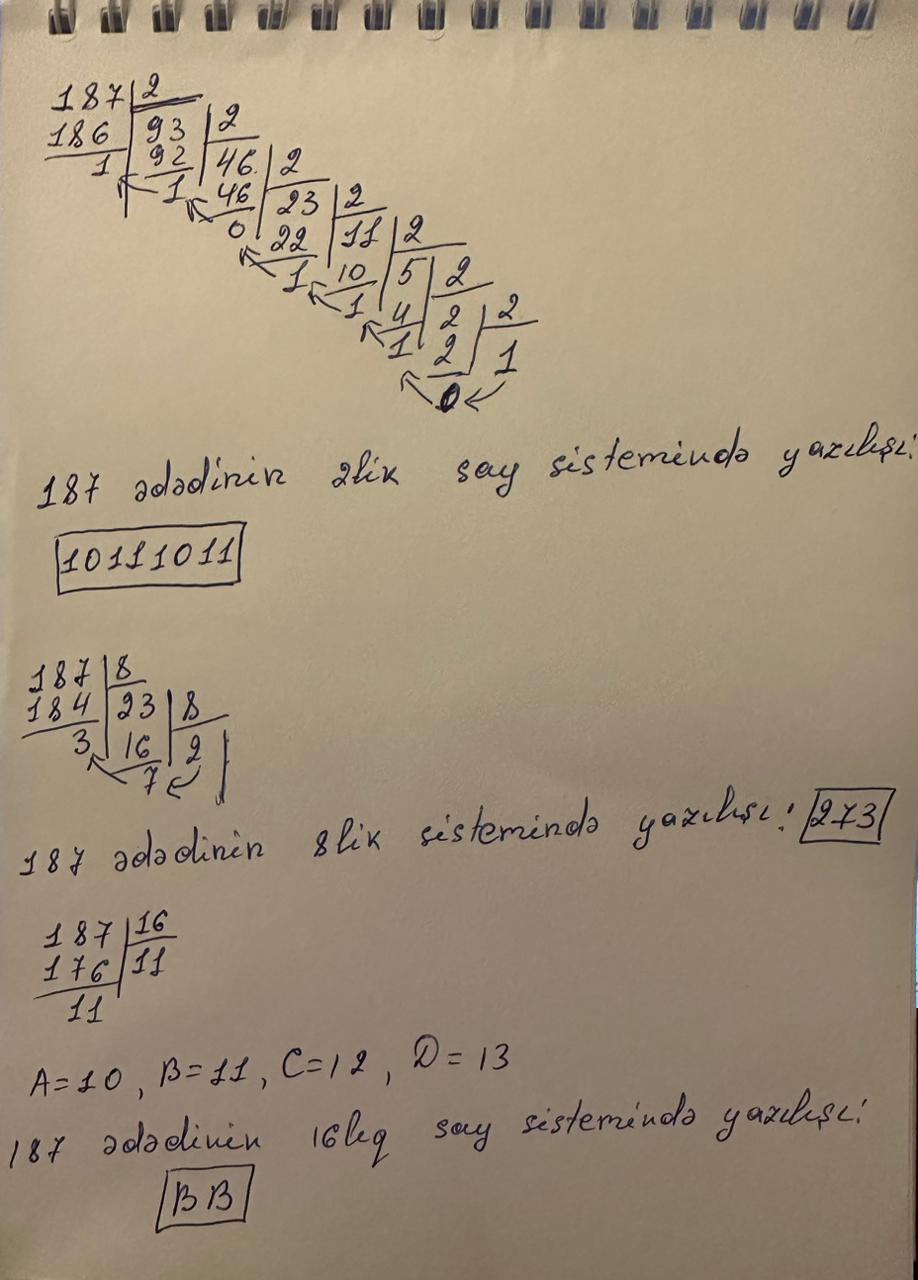 187 2
186 93 2
1 92 46 2
1 46 23 2
0 22 11 2
1 10 5 2
1 4 2 2
1 2 1
0
187 ədədinin 2lik say sistemində yazılışı:
10111011
187 8
184 23 8
3 16 2
7
187 ədədinin 8lik sistemində yazılışı: 273
187 16
176 11
11
A=10, B=11, C=12, D=13
187 ədədinin 16lıq say sistemində yazılışı:
BB